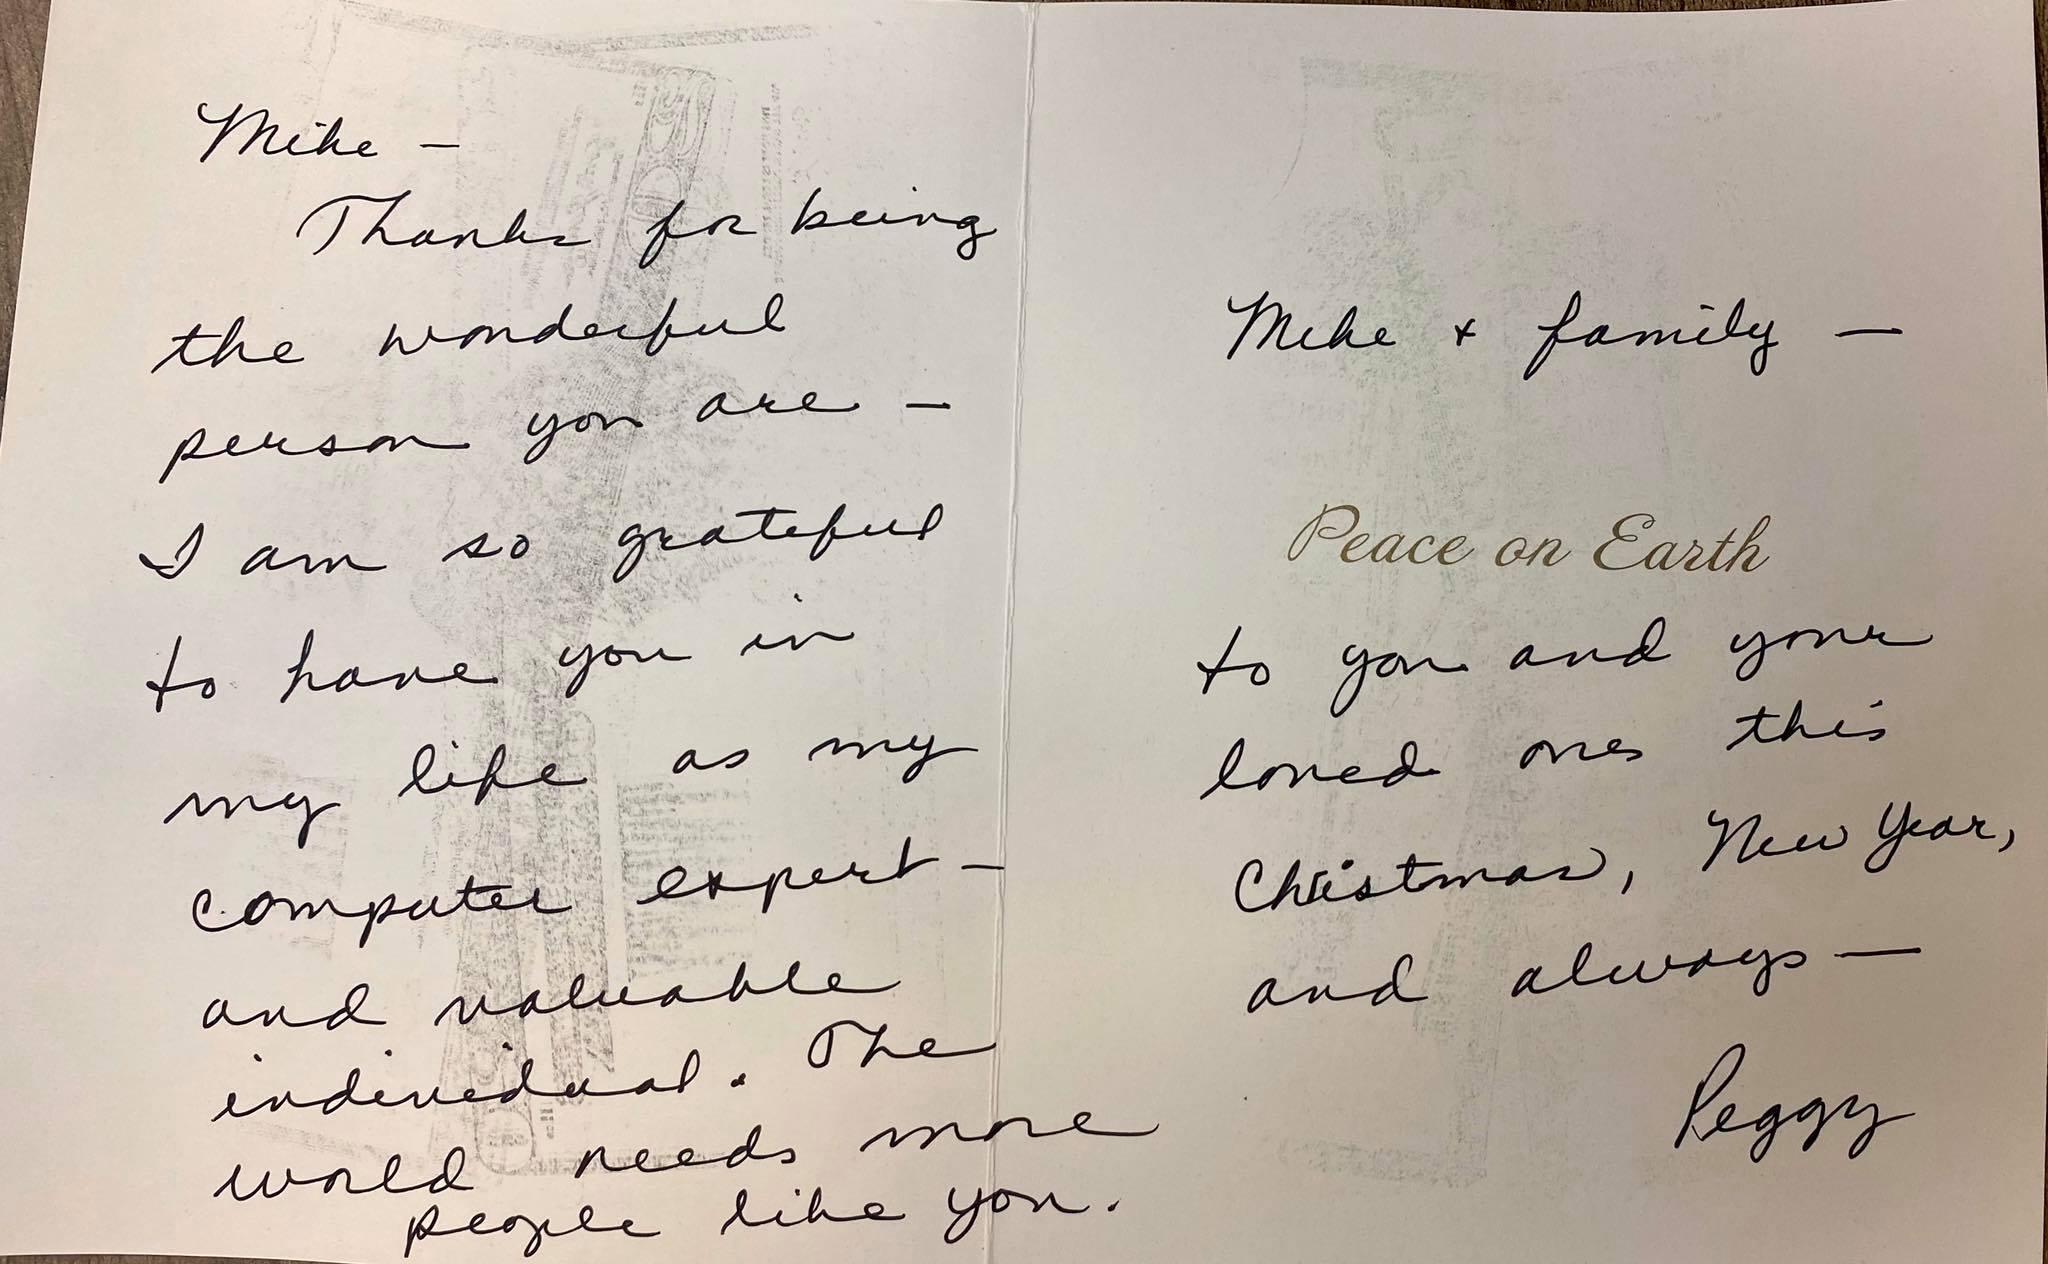 Mike —
Thanks for being
the wonderful
person you are —
I am so grateful
to have you in
my life as my
computer expert —
and valuable
individual. The
world needs more
people like you.
Mike + family —
Peace on Earth
to you and your
loved ones this
Christmas, New Year,
and always —
Peggy